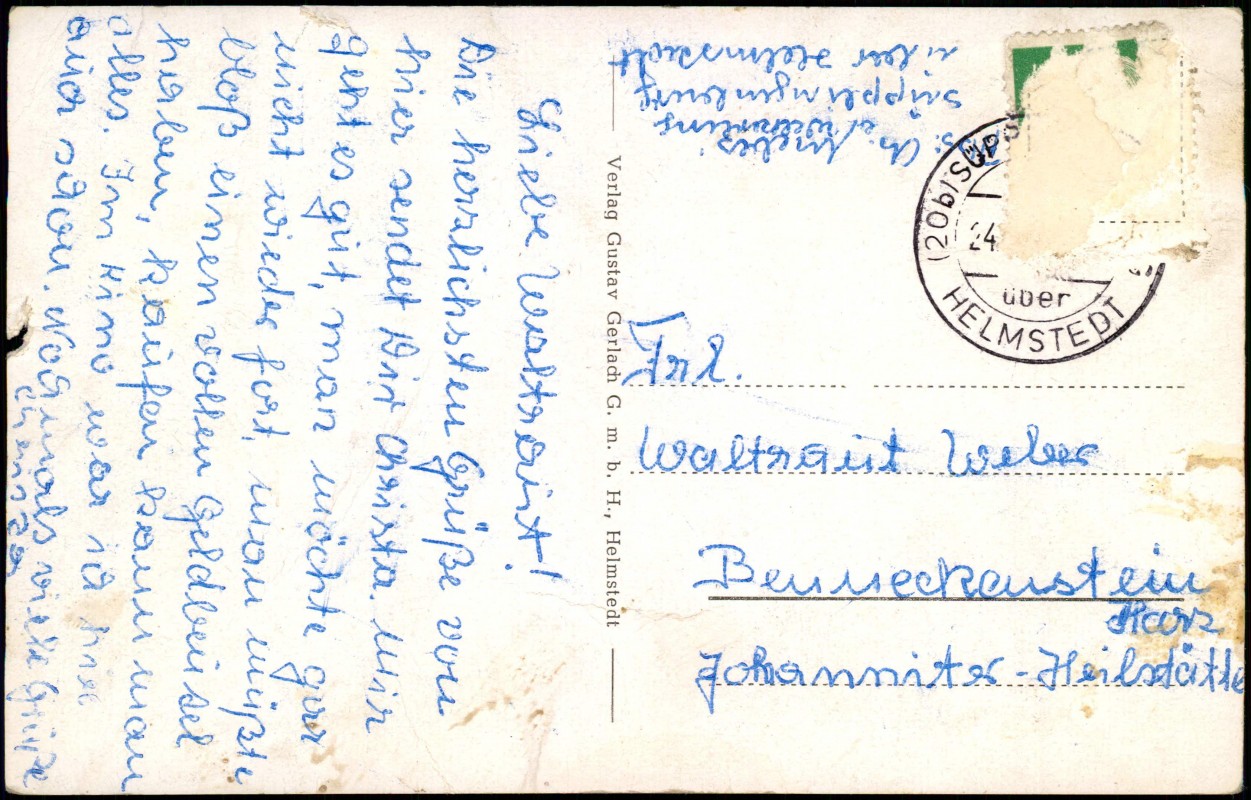 Liebe Waltraut!
Die herzlichsten Grüße von
hier sendet Dir Christa. Mir
geht es gut, man möchte gar
nicht wieder fort, man müßte
bloß einen vollen Geldbeutel
haben, kaufen kann man
alles. Im Kino war ich hier
auch schon. Nochmals viele Grüße
Christa
Verlag Gustav Gerlach G. m. b. H., Helmstedt
Abs: Ch.
Süpplingenburg
über Helmstedt
(20b) SÜPP
24.
über
HELMSTEDT
Frl.
Waltraut Weber
Benneckenstein
Harz
Johanniter-Heilstätte